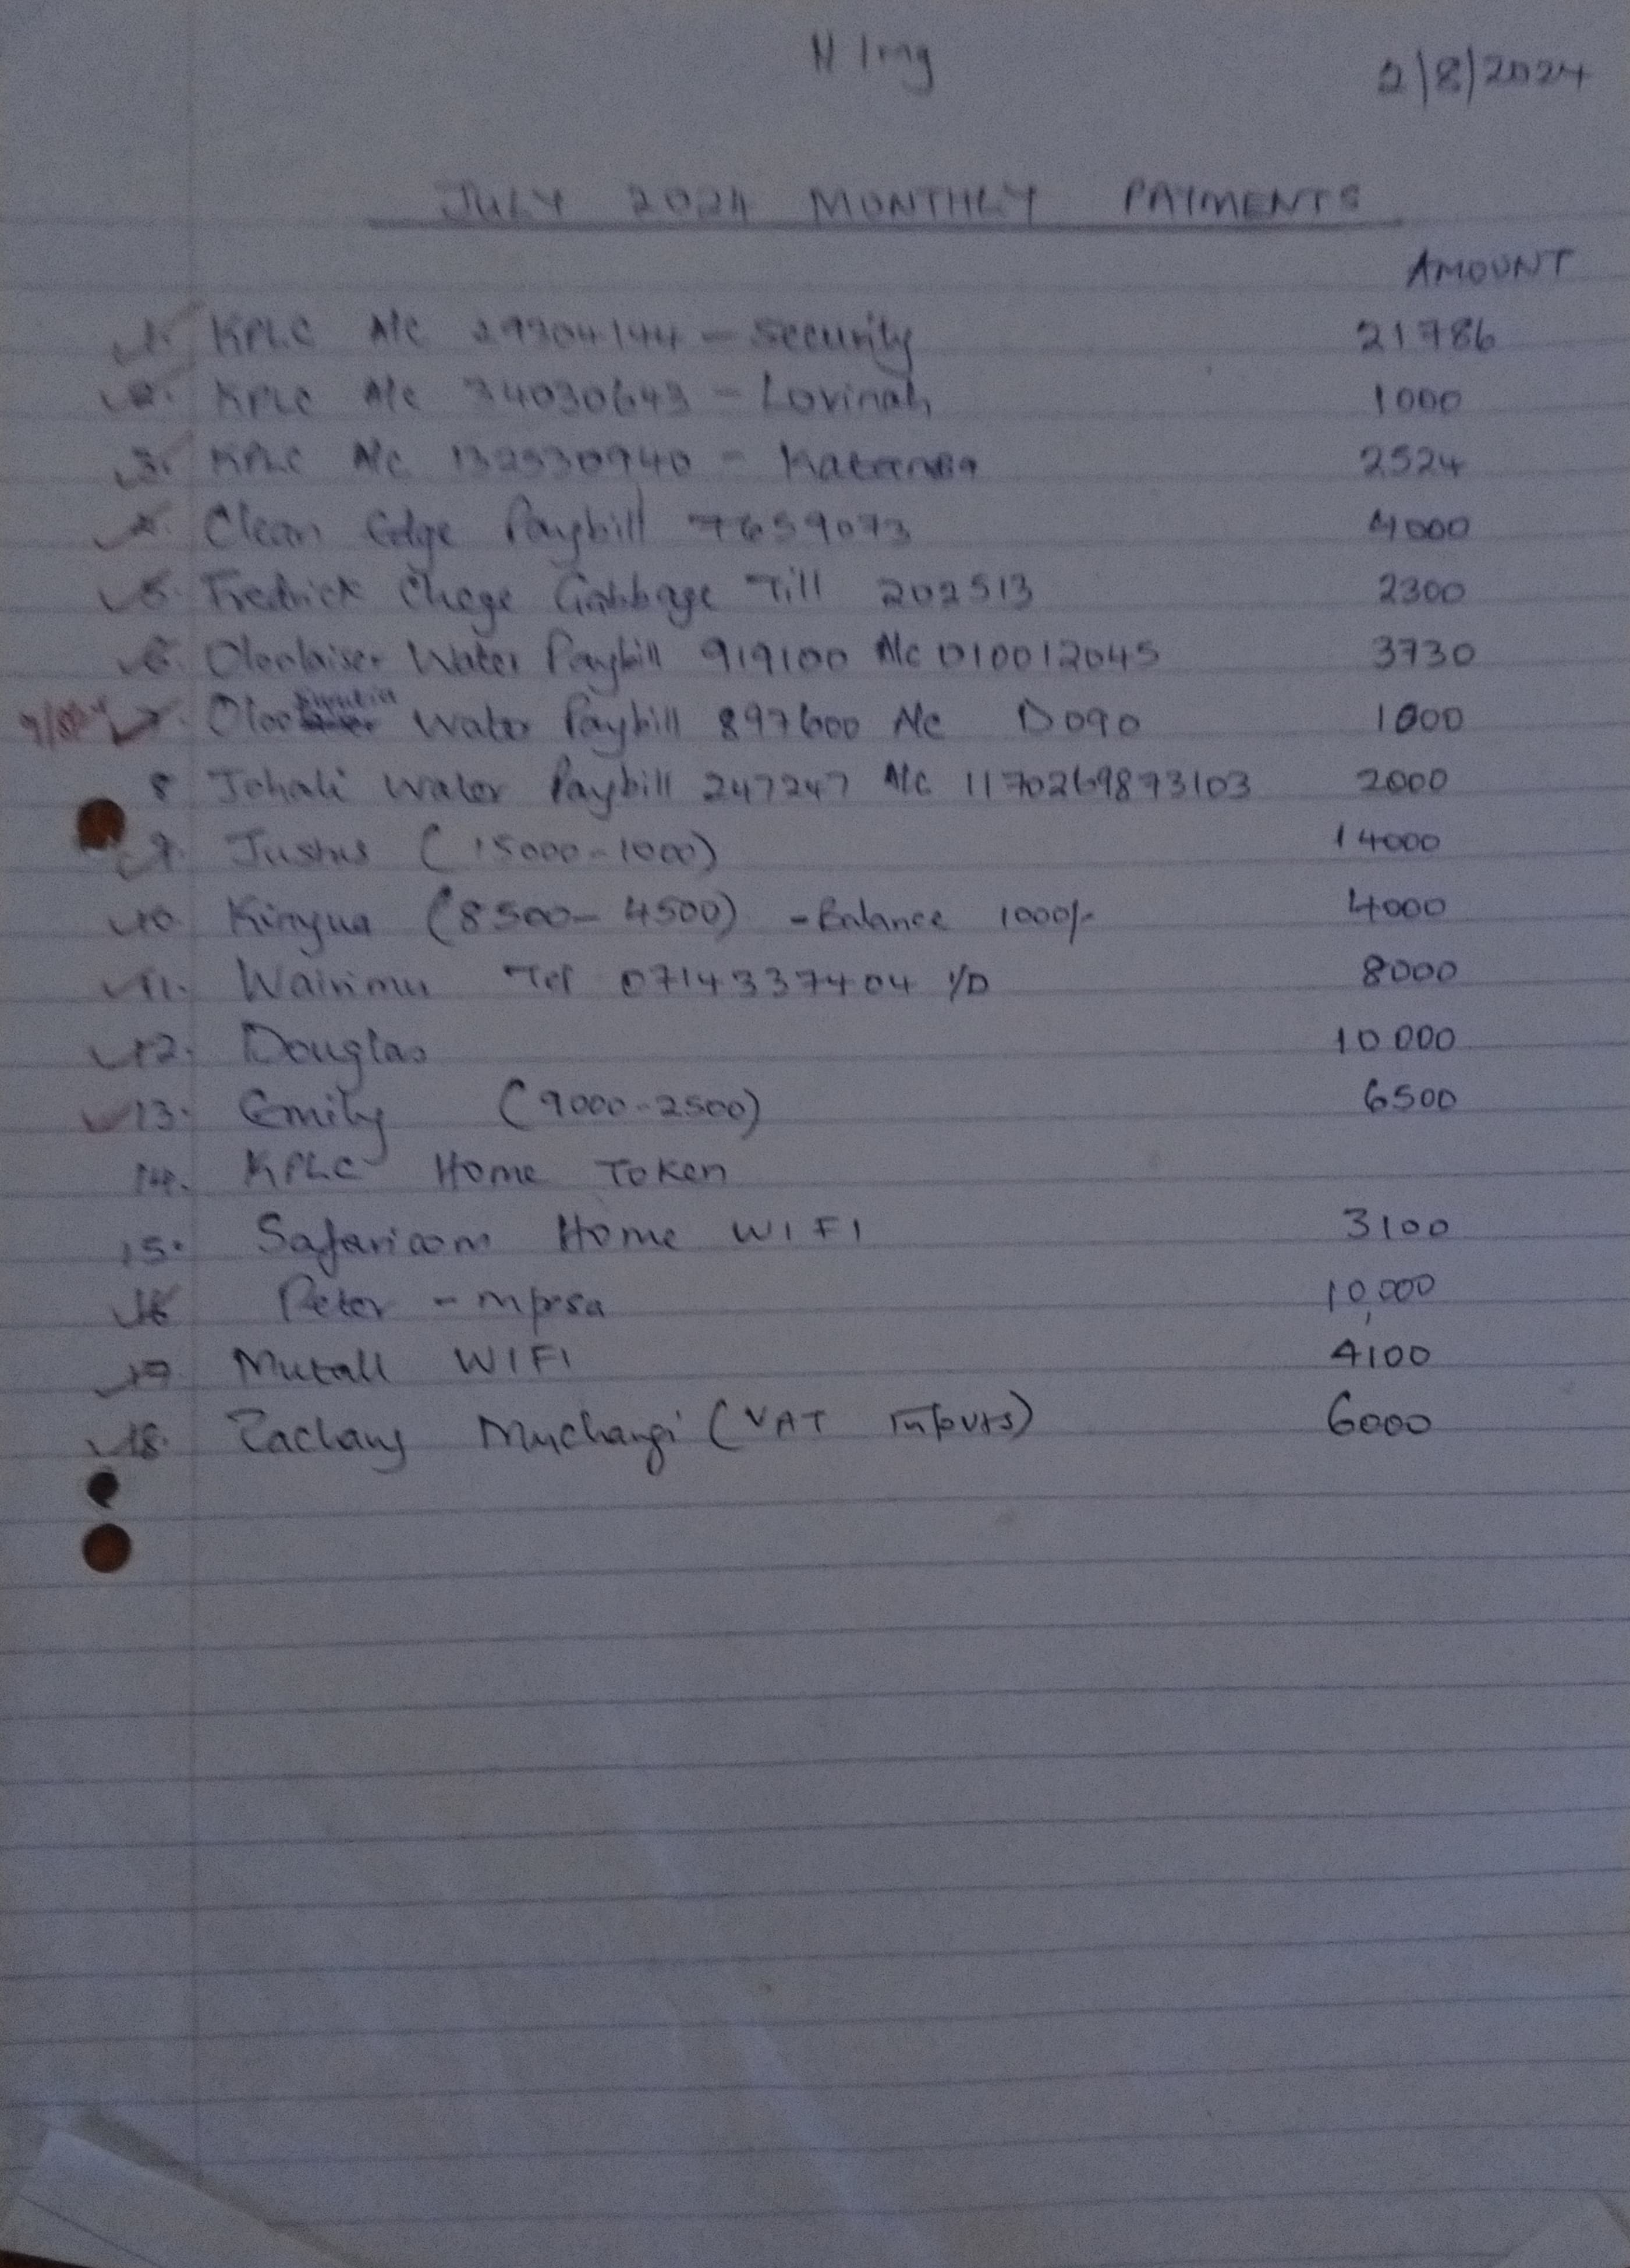 2/8/2024
JULY 2024 MONTHLY PAYMENTS
AMOUNT
1. KPLC A/c 29304144 - Security 21786
2. KPLC A/c 34030643 - Lovinah 1000
3. KPLC A/c 132330940 - 2524
4. Clean Edge Paybill 7659073 4000
5. Fredrick Chege Gabbage Till 202513 2300
6. Oloolaiser Water Paybill 919100 A/c 010012045 3730
7. Water Paybill 897600 A/c D090 1000
8 Johali Water Paybill 247247 A/c 1170269873103 2000
9. Justus (15000-1000) 14000
10. Kinyua (8500-4500) - Balance 1000/- 4000
11. Wairimu Tel 0714337404 8000
12. Douglas 10000
13. Emily (9000-2500) 6500
14. KPLC Home Token
15. Safaricom Home WIFI 3100
16 Peter - mpesa 10,000
17 Mutall WIFI 4100
18. Zachary Muchangi (VAT Inputs) 6000